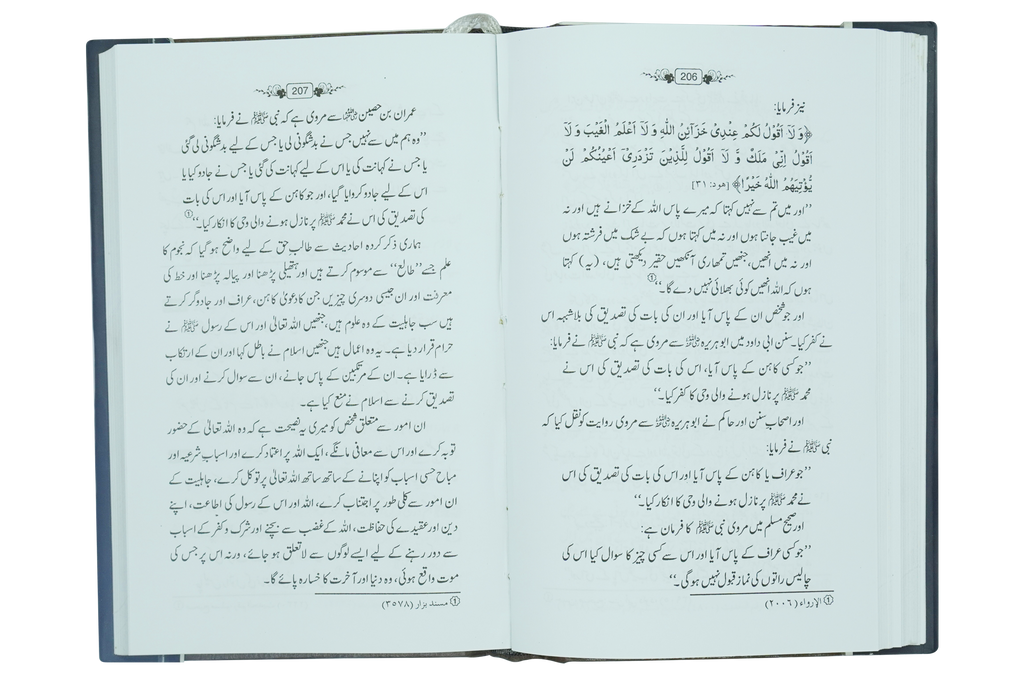 206
نیز فرمایا:
﴿وَ لَآ اَقُوْلُ لَكُمْ عِنْدِیْ خَزَآئِنُ اللّٰهِ وَ لَآ اَعْلَمُ الْغَیْبَ وَ لَآ
اَقُوْلُ اِنِّیْ مَلَكٌ وَّ لَآ اَقُوْلُ لِلَّذِیْنَ تَزْدَرِیْٓ اَعْیُنُكُمْ لَنْ
یُّؤْتِیَهُمُ اللّٰهُ خَیْرًا﴾ [هود: ۳۱]
’’اور میں تم سے نہیں کہتا کہ میرے پاس اللہ کے خزانے ہیں اور نہ
میں غیب جانتا ہوں اور نہ میں کہتا ہوں کہ بے شک میں فرشتہ ہوں
اور نہ میں انھیں، جنھیں تمھاری آنکھیں حقیر دیکھتی ہیں، (یہ) کہتا
ہوں کہ اللہ انھیں کوئی بھلائی نہیں دے گا۔‘‘①
اور جو شخص ان کے پاس آیا اور ان کی بات کی تصدیق کی بلاشبہہ اس
نے کفر کیا۔ سنن ابی داود میں ابوہریرہ رضی اللہ عنہ سے مروی ہے کہ نبی ﷺ نے فرمایا:
’’جو کسی کاہن کے پاس آیا، اس کی بات کی تصدیق کی اس نے
محمد ﷺ پر نازل ہونے والی وحی کا کفر کیا۔‘‘
اور اصحاب سنن اور حاکم نے ابوہریرہ رضی اللہ عنہ سے مروی روایت کو نقل کیا کہ
نبی ﷺ نے فرمایا:
’’جو عراف یا کاہن کے پاس آیا اور اس کی بات کی تصدیق کی اس
نے محمد ﷺ پر نازل ہونے والی وحی کا انکار کیا۔‘‘
اور صحیح مسلم میں مروی نبی ﷺ کا فرمان ہے:
’’جو کسی عراف کے پاس آیا اور اس سے کسی چیز کا سوال کیا اس کی
چالیس راتوں کی نماز قبول نہیں ہوگی۔‘‘
① الإرواء (۲۰۰٦)
207
عمران بن حصین رضی اللہ عنہ سے مروی ہے کہ نبی ﷺ نے فرمایا:
’’وہ ہم میں سے نہیں جس نے بدشگونی لی یا جس کے لیے بدشگونی لی گئی
یا جس نے کہانت کی یا اس کے لیے کہانت کی گئی یا جس نے جادو کیا یا
اس کے لیے جادو کروایا گیا، اور جو کاہن کے پاس آیا اور اس کی بات
کی تصدیق کی اس نے محمد ﷺ پر نازل ہونے والی وحی کا انکار کیا۔‘‘①
ہماری ذکر کردہ احادیث سے طالب حق کے لیے واضح ہو گیا کہ نجوم کا
علم جسے ’’طالع‘‘ سے موسوم کرتے ہیں اور ہتھیلی پڑھنا اور پیالہ پڑھنا اور خط کی
معرفت اور ان جیسی دوسری چیزیں جن کا دعویٰ کاہن، عراف اور جادوگر کرتے
ہیں سب جاہلیت کے وہ علوم ہیں، جنھیں اللہ تعالیٰ اور اس کے رسول ﷺ نے
حرام قرار دیا ہے۔ یہ وہ اعمال ہیں جنھیں اسلام نے باطل کہا اور ان کے ارتکاب
سے ڈرایا ہے۔ ان کے مرتکبین کے پاس جانے، ان سے سوال کرنے اور ان کی
تصدیق کرنے سے اسلام نے منع کیا ہے۔
ان امور سے متعلق شخص کو میری یہ نصیحت ہے کہ وہ اللہ تعالیٰ کے حضور
توبہ کرے اور اس سے معافی مانگے، ایک اللہ پر اعتماد کرے اور اسباب شرعیہ اور
مباح حسی اسباب کو اپنانے کے ساتھ ساتھ اللہ تعالیٰ پر توکل کرے، جاہلیت کے
ان امور سے کلی طور پر اجتناب کرے، اللہ اور اس کے رسول کی اطاعت، اپنے
دین اور عقیدے کی حفاظت، اللہ کے غضب سے بچنے اور شرک و کفر کے اسباب
سے دور رہنے کے لیے ایسے لوگوں سے لا تعلق ہو جائے، ورنہ اس پر جس کی
موت واقع ہوئی، وہ دنیا اور آخرت کا خسارہ پائے گا۔
① مسند بزار (۳۵۷۸)